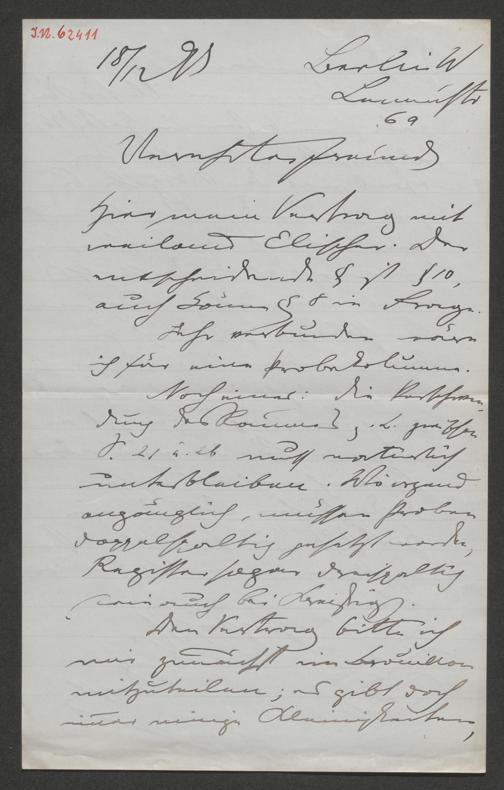 I.N. 62411
18/12 98
Berlin W
69
Verehrtester Freund
Hier mein Vertrag mit
weiland Elischer. Der
entscheidende § ist § 10,
auch könnte § 8 in Frage.
Sehr verbunden wäre
ich für eine Probekolumne.
Noch eines: die Verschwen-
dung des Raumes, z. B. zwischen
S. 21 u. 26 muß natürlich
unterbleiben. Wo irgend
angänglich, müssen Proben
doppelspaltig gesetzt werden,
Register sogar dreispaltig
wie auch bei
Den Vertrag bitte ich
mir zunächst im Brouillon
mitzuteilen; es gibt doch
immer einige Kleinigkeiten,